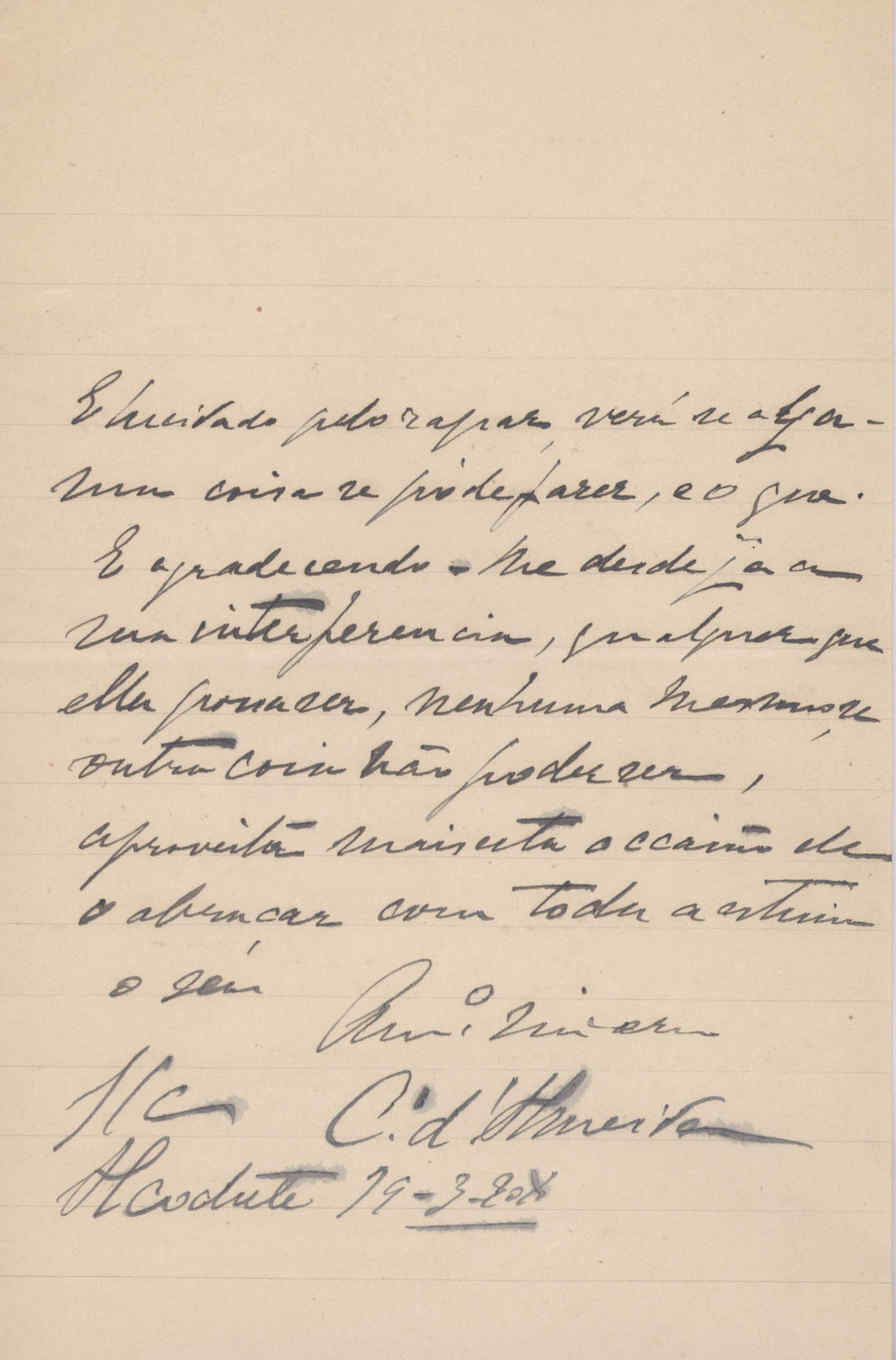 Elucidado pelo rapaz, verá se algu-
ma coisa se póde fazer, e o que.
E agradecendo-lhe desde já a
sua interferencia, qualquer que
ella possa ser, nenhuma mesmo, se
outra coisa não poder ser,
aproveita mais esta occasião de
o abraçar com toda a estima
o seu
Am.º sincero
S/C
C. d'Almeida
19-3-